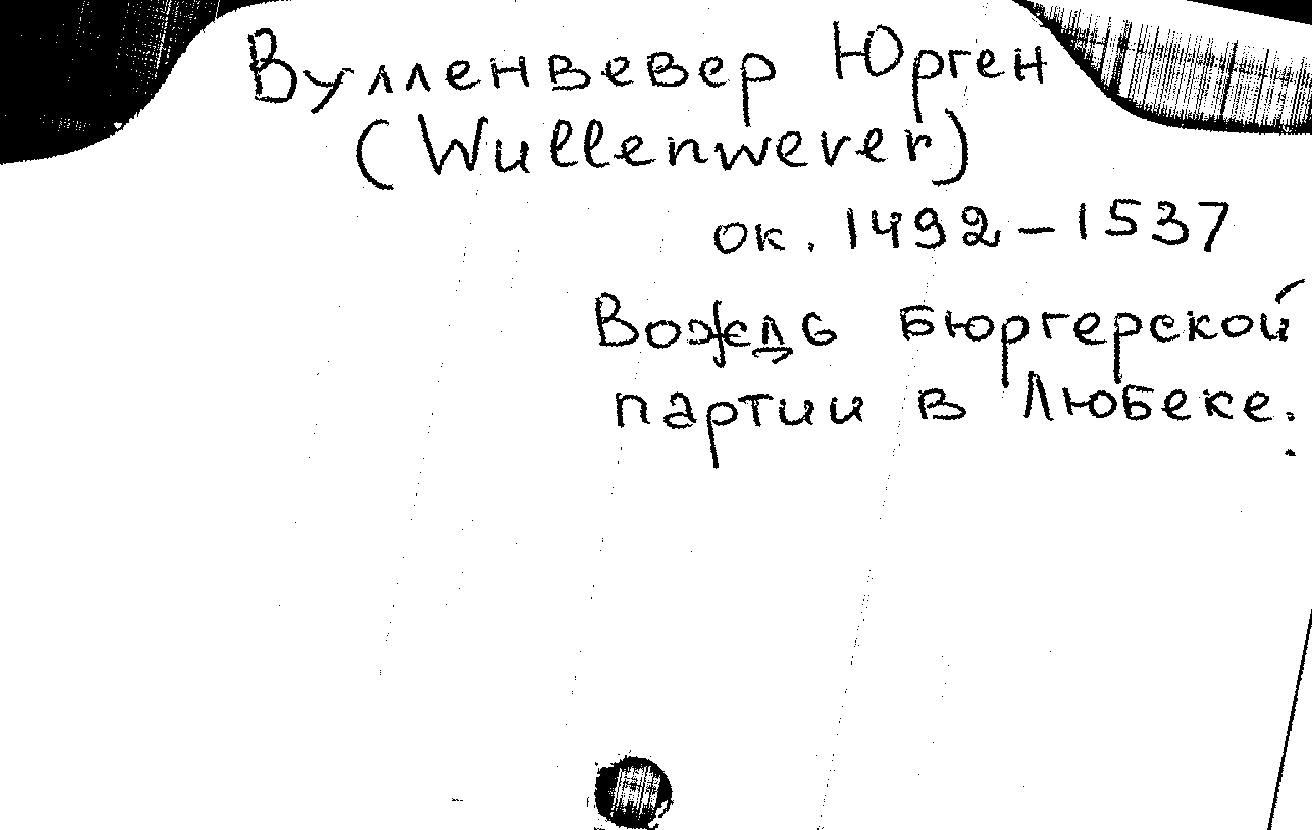 Вулленвевер Юрген
(Wullenwever)
ок. 1492-1537
Вождь бюргерской
партии в Любеке.